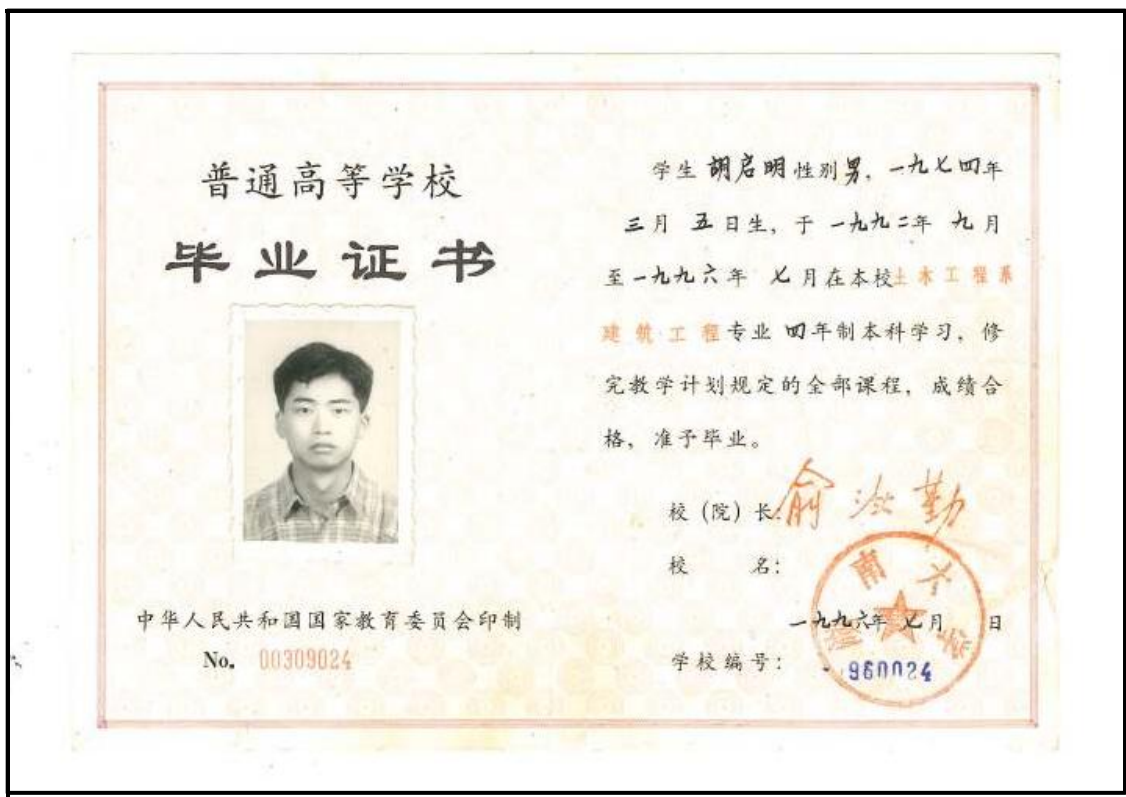 普通高等学校
毕业证书
中华人民共和国国家教育委员会印制
No. 00309024
学生 胡启明 性别 男, 一九七四年
三月 五日生, 于 一九九二年 九月
至一九九六年 七月在本校土木工程系
建筑工程专业 四年制本科学习, 修
完教学计划规定的全部课程, 成绩合
格, 准予毕业。
校 (院) 长:
校 名:
一九九六年 七月 日
学校编号: 960024